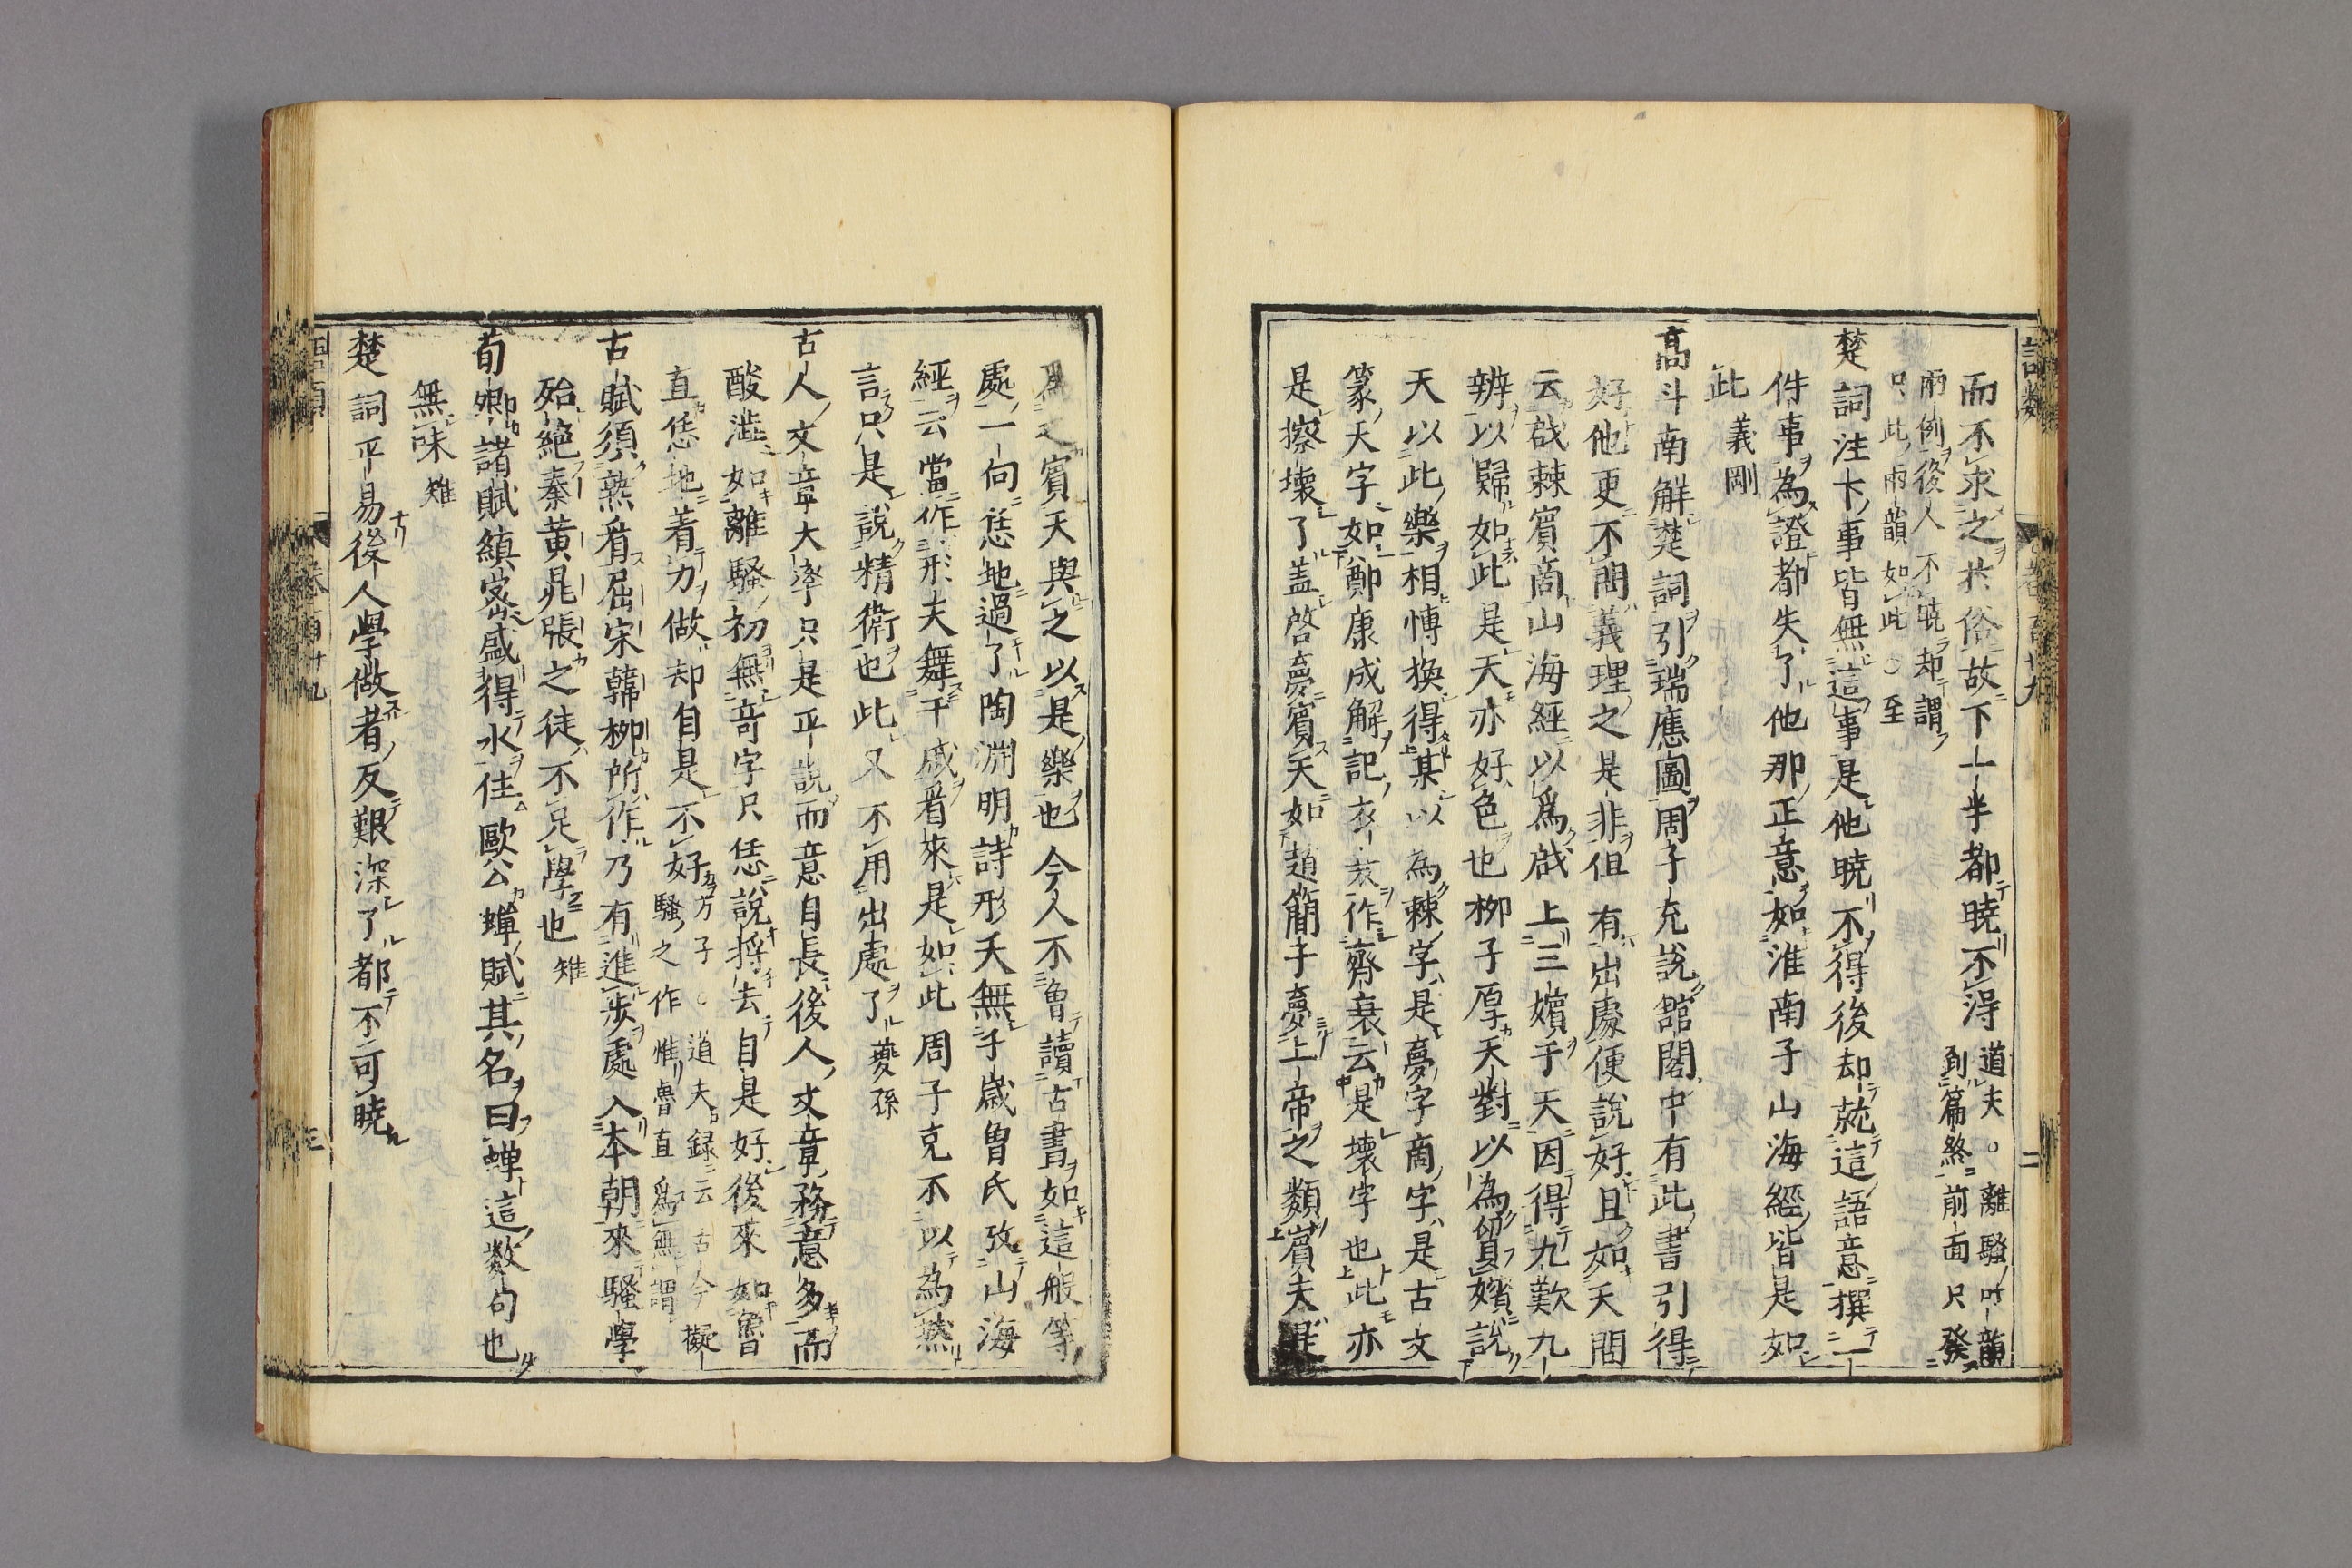 語類
卷百卅九
二
而不求之於俗故下一半都曉不得
道夫○離騷叶韻
到篇終前面只發
兩例後人不曉却謂
只此兩韻如此○至
楚詞注下事皆無這事是他曉不得後却就這語意撰一
件事為證都失了他那正意如淮南子山海經皆是如
此義剛
高斗南解楚詞引瑞應圖周子充說館閣中有此書引得
好他更不問義理之是非但有出處便說好且如天問
云啟棘賓商山海經以為啟上三嬪于天因得九歎九
辨以歸如此是天亦好色也柳子厚天對以為胷嬪說
天以此樂相愽換得某以為棘字是夢字商字是古文
篆天字如鄭康成解記衣衰作齊衰云是壞字也此亦
是擦壞了盖啓夢賓天如趙簡子夢上帝之類賓天是
為之賓天與之以是樂也今人不曾讀古書如這般等
處一向恁地過了陶淵明詩形夭無千歲曾氏攷山海
經云當作形夭舞干戚看來是如此周子充不以為然
言只是說精衛也此又不用出處了夔孫
古人文章大率只是平說而意自長後人文章務意多而
酸澁如離騷初無奇字只恁說將去自是好後來如魯
直恁地着力做却自是不好
方子○道夫録云古今擬
騷之作惟魯直為無謂
古賦須熟看屈宋韓栁所作乃有進步處入本朝來騷學
殆絶秦黄晁張之徒不足學也雉
荀卿諸賦縝宻盛得水住歐公蟬賦其名曰蟬這數句也
無味雉
楚詞平易後人學做者反艱深了都不可曉
語類
卷百卅九
三